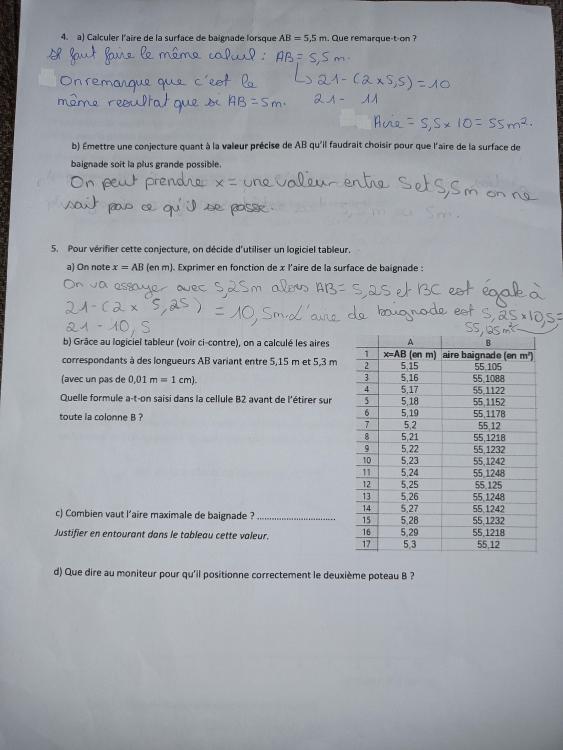 4. a) Calculer l'aire de la surface de baignade lorsque AB = 5,5 m. Que remarque-t-on ?
Il faut faire le même calcul : AB = 5,5 m.
On remarque que c'est le ↳ 21 - (2 x 5,5) = 10
même resultat que si AB = 5m. 21 - 11
Aire = 5,5 x 10 = 55 m².
b) Émettre une conjecture quant à la valeur précise de AB qu'il faudrait choisir pour que l'aire de la surface de
baignade soit la plus grande possible.
On peut prendre x = une valeur entre 5 et 5,5m on ne
sait pas ce qu'il se passe.
5. Pour vérifier cette conjecture, on décide d'utiliser un logiciel tableur.
a) On note x = AB (en m). Exprimer en fonction de x l'aire de la surface de baignade :
On va essayer avec 5,25m alors AB = 5,25 et BC est égale à
21 - (2 x 5,25) = 10,5m. L'aire de baignade est 5,25 x 10,5 =
21 - 10,5 55,125m²
b) Grâce au logiciel tableur (voir ci-contre), on a calculé les aires
correspondants à des longueurs AB variant entre 5,15 m et 5,3 m
(avec un pas de 0,01 m = 1 cm).
Quelle formule a-t-on saisi dans la cellule B2 avant de l'étirer sur
toute la colonne B ?
A B
1 x=AB (en m) aire baignade (en m²)
2 5,15 55,105
3 5,16 55,1088
4 5,17 55,1122
5 5,18 55,1152
6 5,19 55,1178
7 5,2 55,12
8 5,21 55,1218
9 5,22 55,1232
10 5,23 55,1242
11 5,24 55,1248
12 5,25 55,125
13 5,26 55,1248
14 5,27 55,1242
15 5,28 55,1232
16 5,29 55,1218
17 5,3 55,12
c) Combien vaut l'aire maximale de baignade ? ................................
Justifier en entourant dans le tableau cette valeur.
d) Que dire au moniteur pour qu'il positionne correctement le deuxième poteau B ?